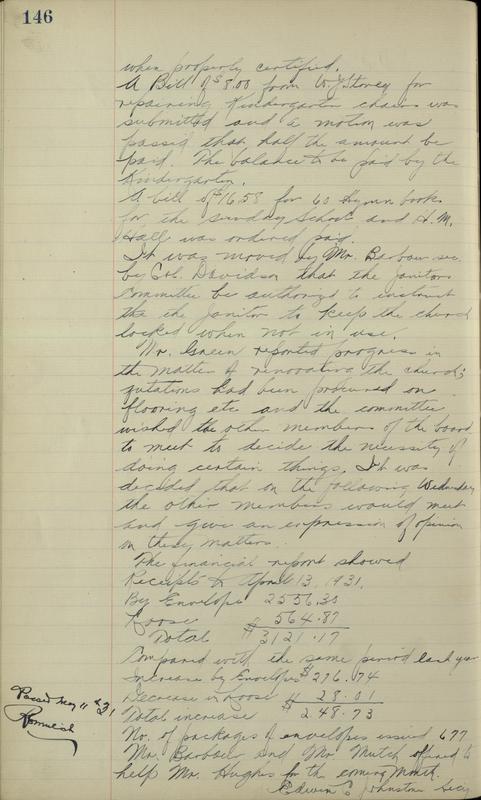 146
when properly certified.
A Bill of $8.00 from W. J. Storey for
repairing Kindergarten chairs was
submitted and a motion was
passed that half the amount be
paid. The balance to be paid by the
Kindergarten.
A bill of $16.58 for 60 Hymn books
for the Sunday School and H. M.
Hall was ordered paid.
It was moved by Mr. Barbour sec.
by Col. Davidson that the janitors
Committee be authorized to instruct
the the janitor to keep the church
locked when not in use.
Mr. Green reported progress in
the matter of renovating the church;
qutations had been procured on
flooring etc and the committee
wished the other members of the board
to meet to decide the necessity of
doing certain things. It was
decided that on the following Wednesday
the other members would meet
and give an expression of opinion
on these matters.
The financial report showed
Receipts to April 13, 1931.
By Envelope 2556.30
Loose $ 564.87
Total 3121.17
Compared with the same period last year
Increase by Envelopes $276.74
Decrease in Loose $ 28.01
Total increase $ 248.73
Passed May 11th 31
No. of packages of envelopes issued 677
Mr. Barbour and Mr. Mutch offered to
help Mr. Hughes for the coming month.
Edwin C Johnston Secy